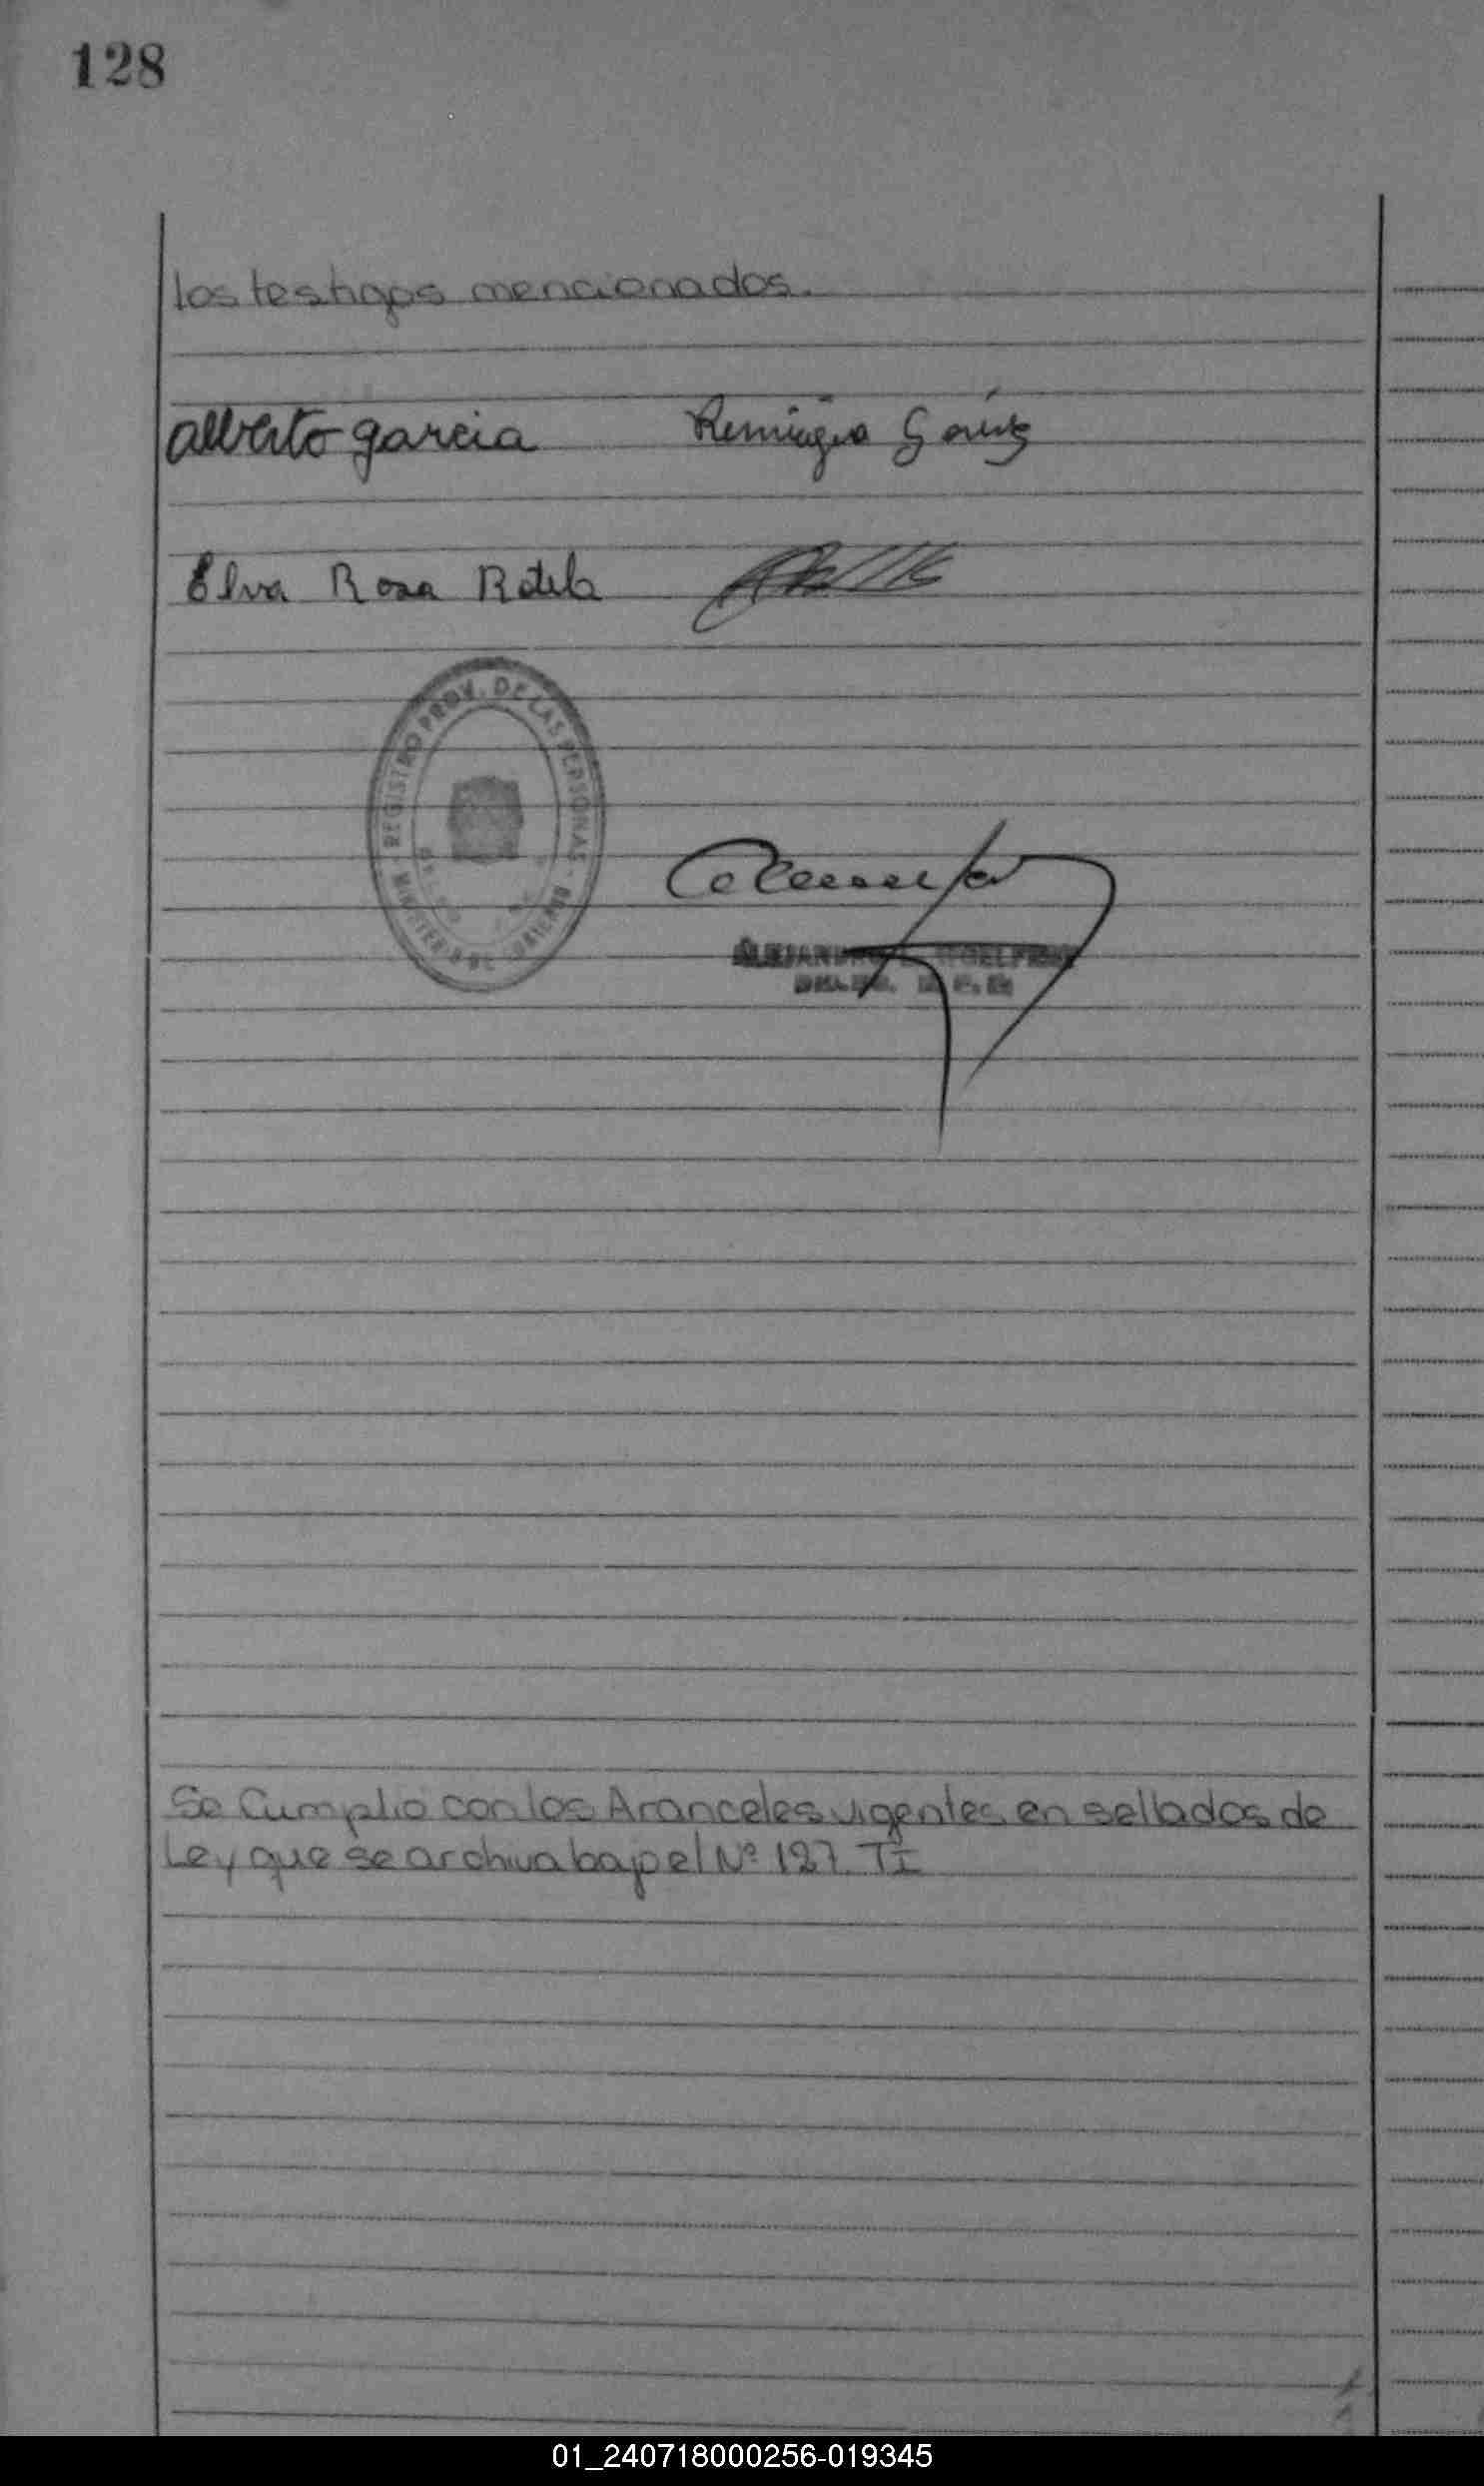 128
los testigos mencionados.
Alberto garcia Remigia
Elva Rosa Rotela
REGISTRO PROV. DE LAS PERSONAS
MINISTERIO DE GOBIERNO
Se Cumplio con los Aranceles vigentes en sellados de
Ley que se archiva bajo el Nº 127. TI
01_240718000256-019345